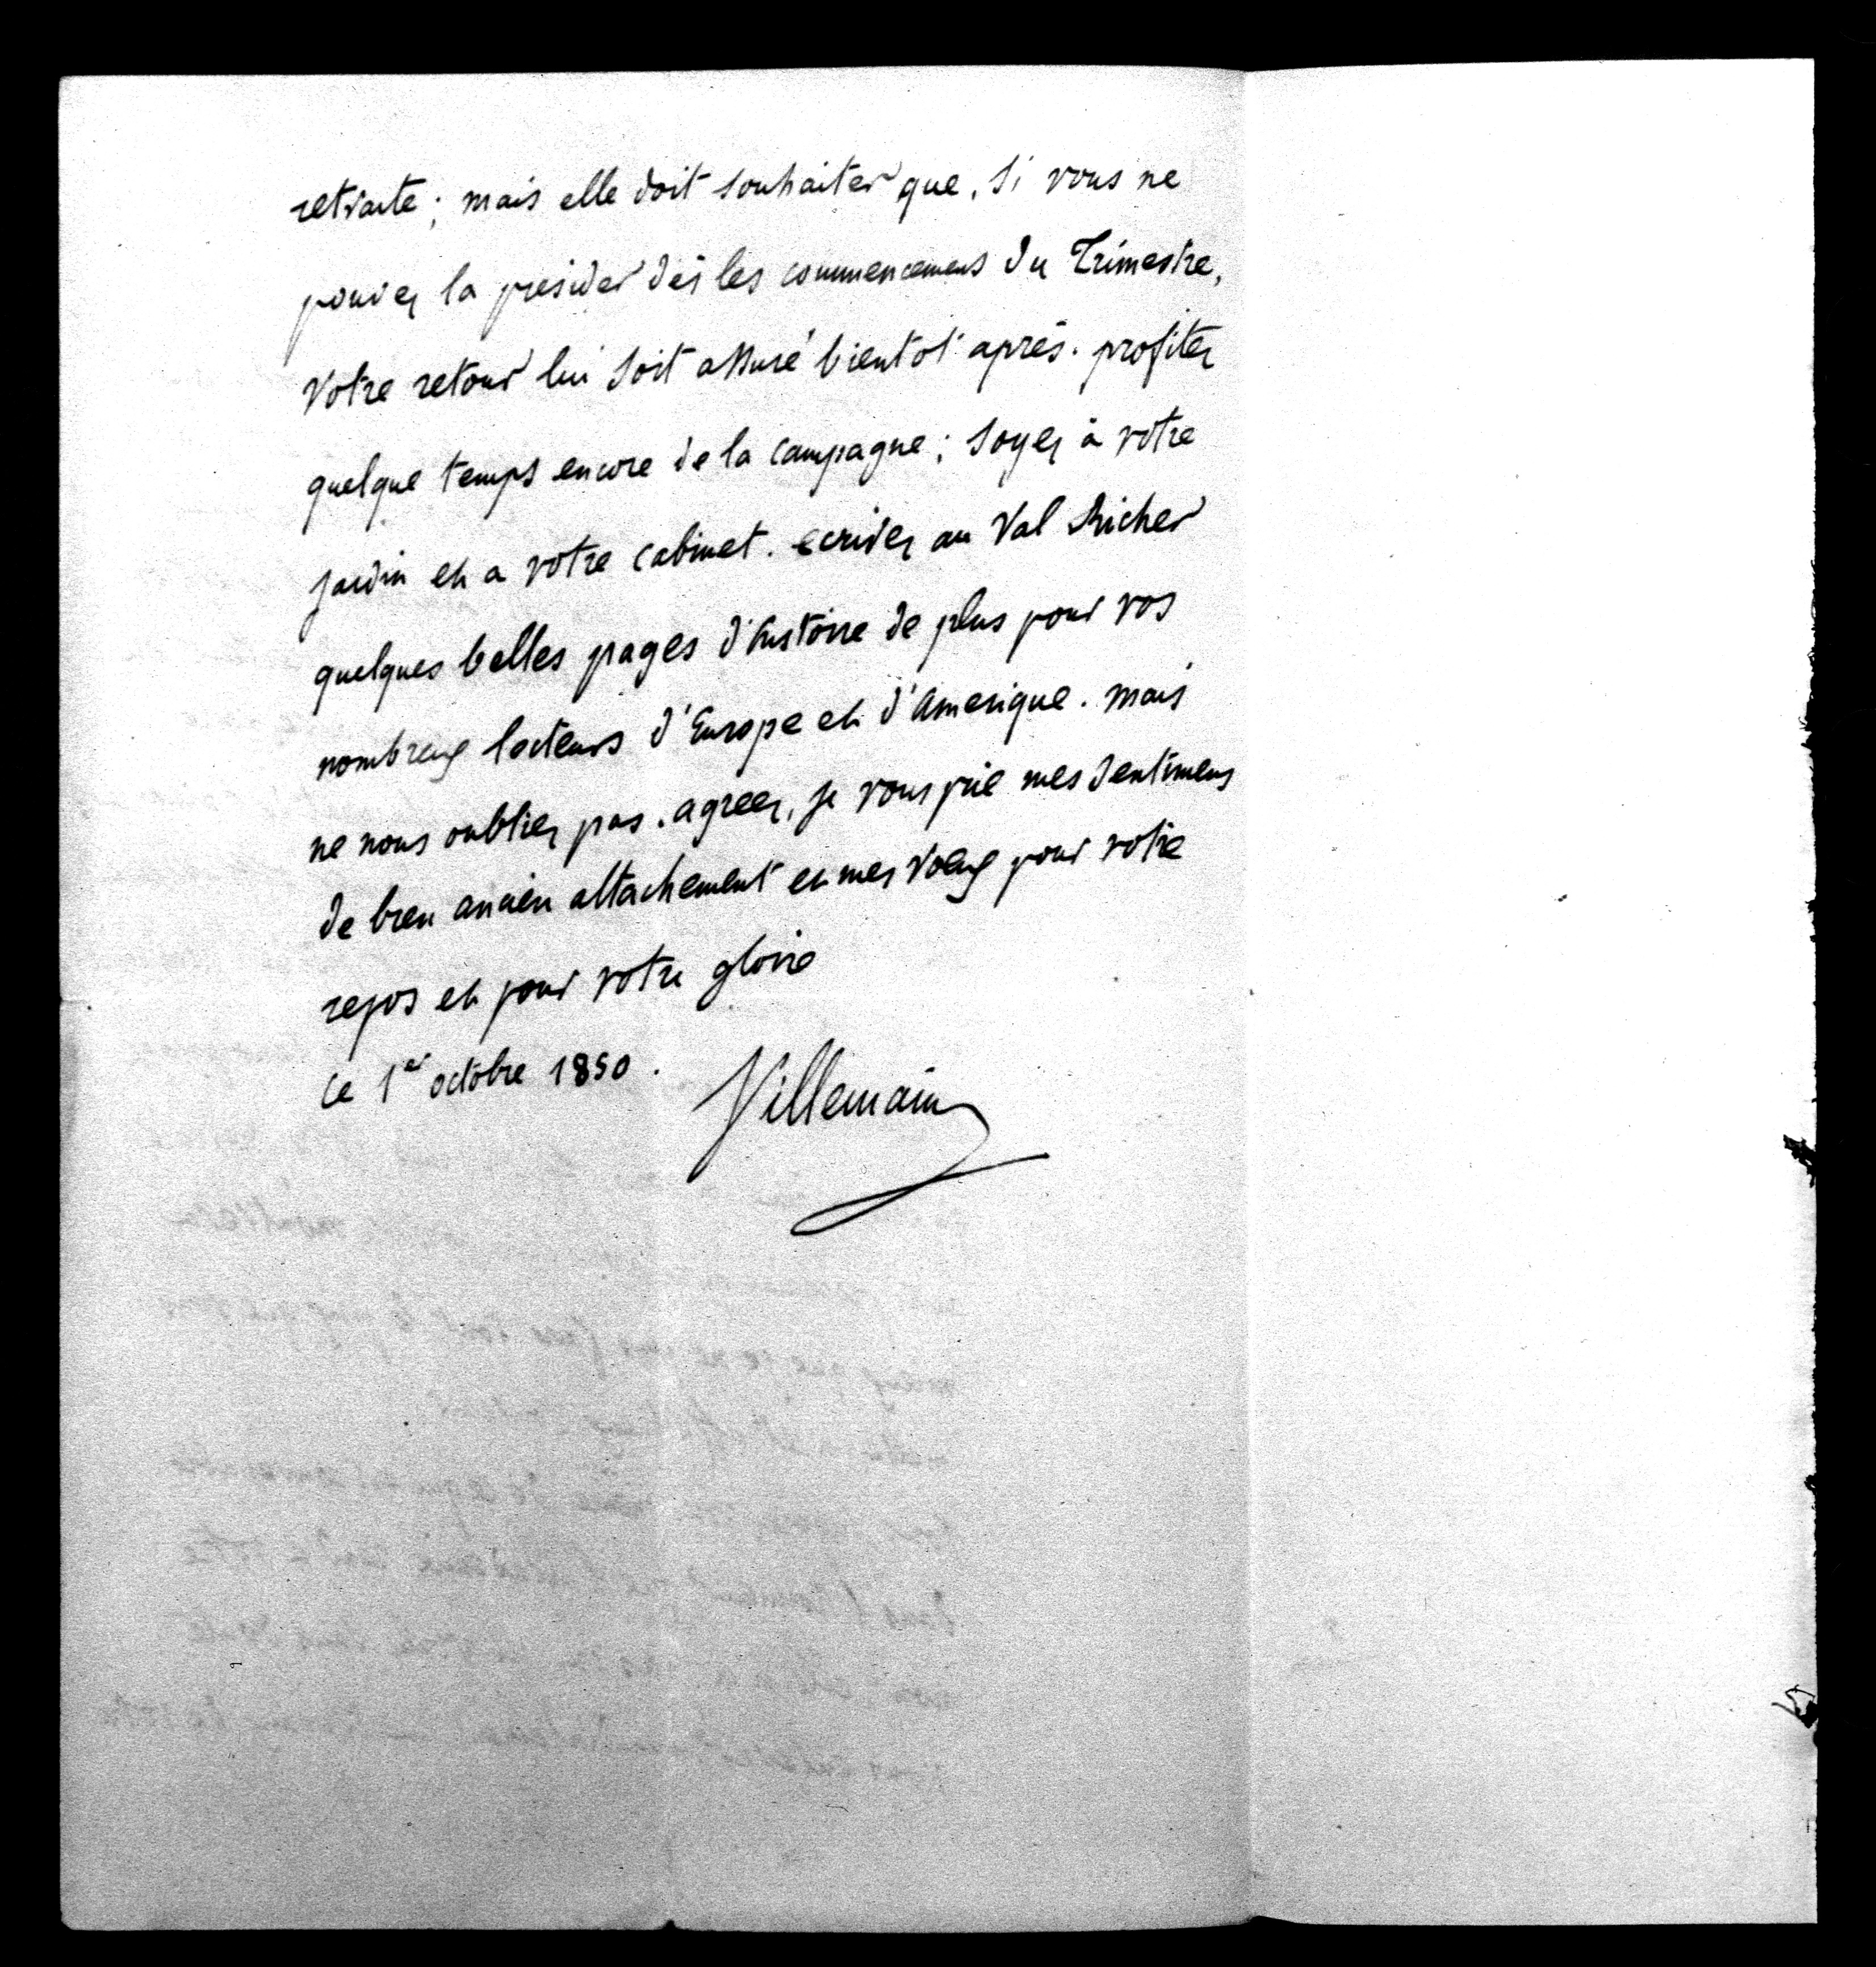 retraite ; mais elle doit souhaiter que, si vous ne
pouvez la présider dès les commencemens du Trimestre,
votre retour lui soit assuré bientot après. profitez
quelque temps encore de la campagne ; soyez à votre
jardin et a votre cabinet. ecrivez au Val Richer
quelques belles pages d'histoire de plus pour vos
nombreux lecteurs d'Europe et d'Amerique. mais
ne nous oubliez pas. agreez, je vous prie mes sentimens
de bien ancien attachement et mes vœux pour votre
repos et pour votre gloire
ce 1er octobre 1850.
Villemain